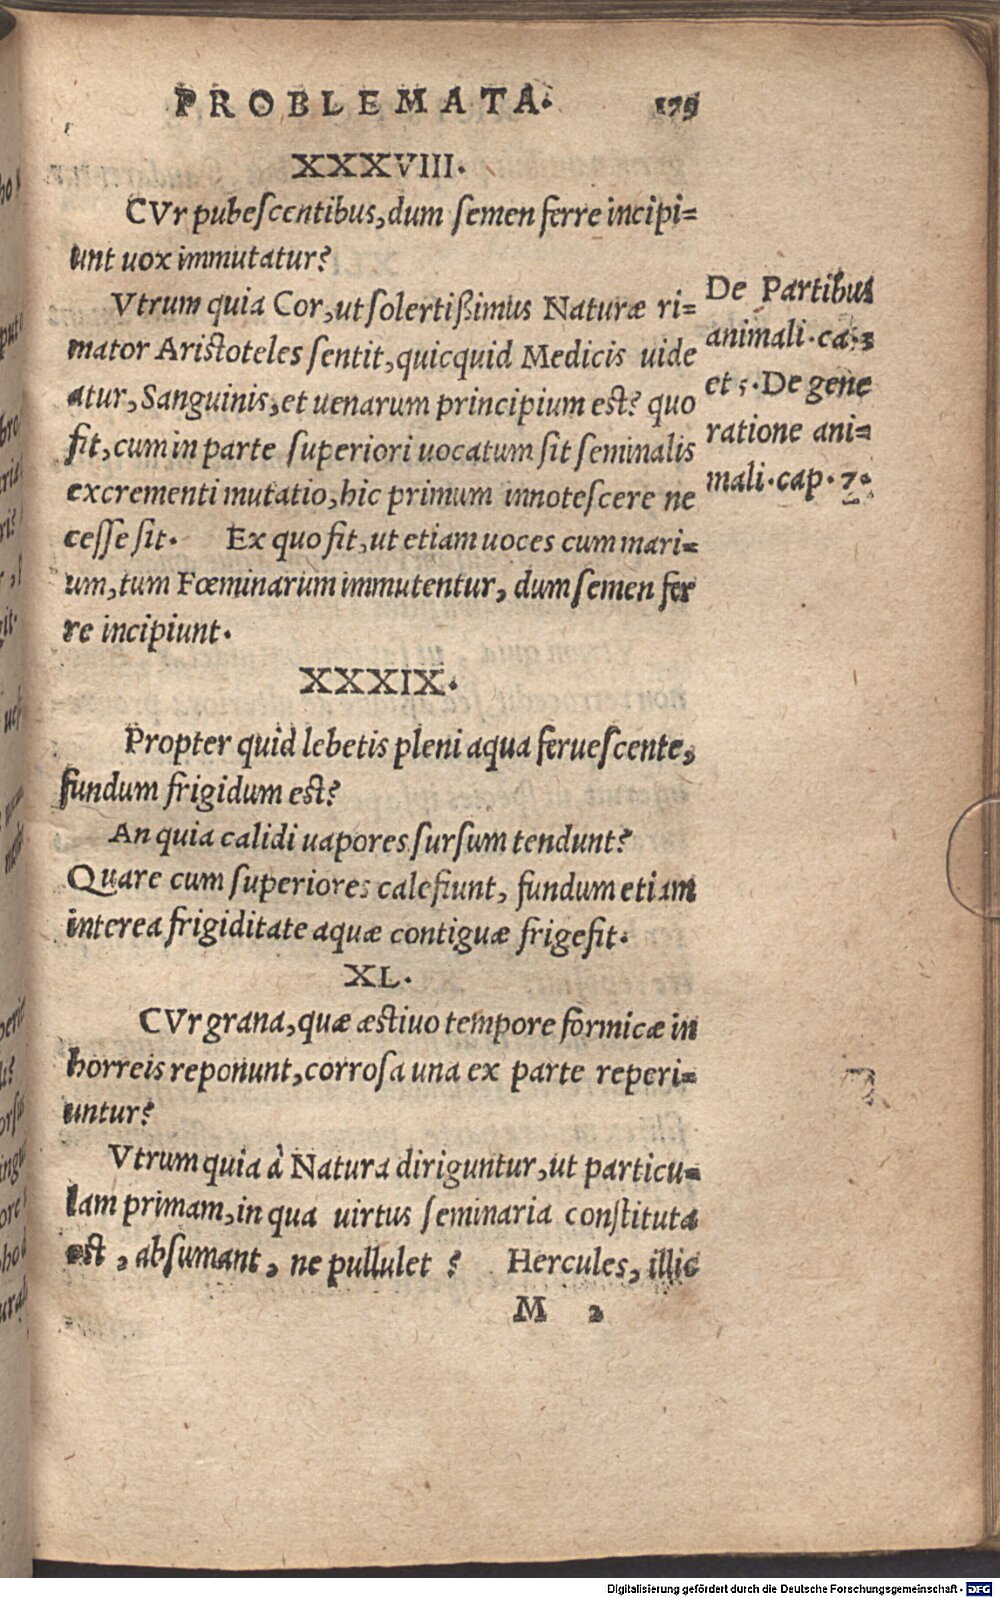 PROBLEMATA. 179
XXXVIII.
CVr pubescentibus, dum semen ferre incipi=
unt uox immutatur?
Vtrum quia Cor, ut solertißimus Naturæ ri=
mator Aristoteles sentit, quicquid Medicis uide
atur, Sanguinis, et uenarum principium est? quo
fit, cum in parte superiori uocatum sit seminalis
excrementi mutatio, hic primum innotescere ne
cesse sit. Ex quo fit, ut etiam uoces cum mari=
um, tum Fœminarum immutentur, dum semen fer
re incipiunt.
De Partibus
animali. ca. 3
et 5. De gene
ratione ani=
mali. cap. 7.
XXXIX.
Propter quid lebetis pleni aqua feruescente,
fundum frigidum est?
An quia calidi uapores sursum tendunt?
Quare cum superiores calefiunt, fundum etiam
interea frigiditate aquæ contiguæ frigefit.
XL.
CVr grana, quæ æstiuo tempore formicæ in
horreis reponunt, corrosa una ex parte reperi=
untur?
Vtrum quia à Natura diriguntur, ut particu=
lam primam, in qua uirtus seminaria constituta
est, absumant, ne pullulet? Hercules, illic
M 2
Digitalisierung gefördert durch die Deutsche Forschungsgemeinschaft - DFG